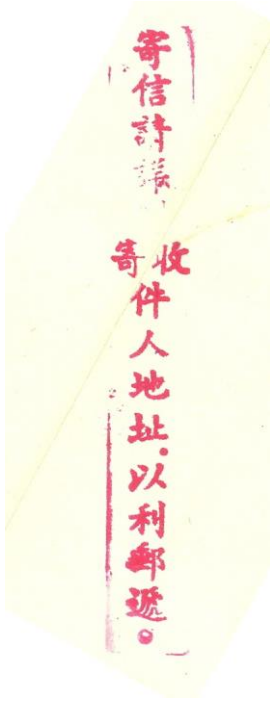 寄信請詳
收寄件人地址.以利郵遞。